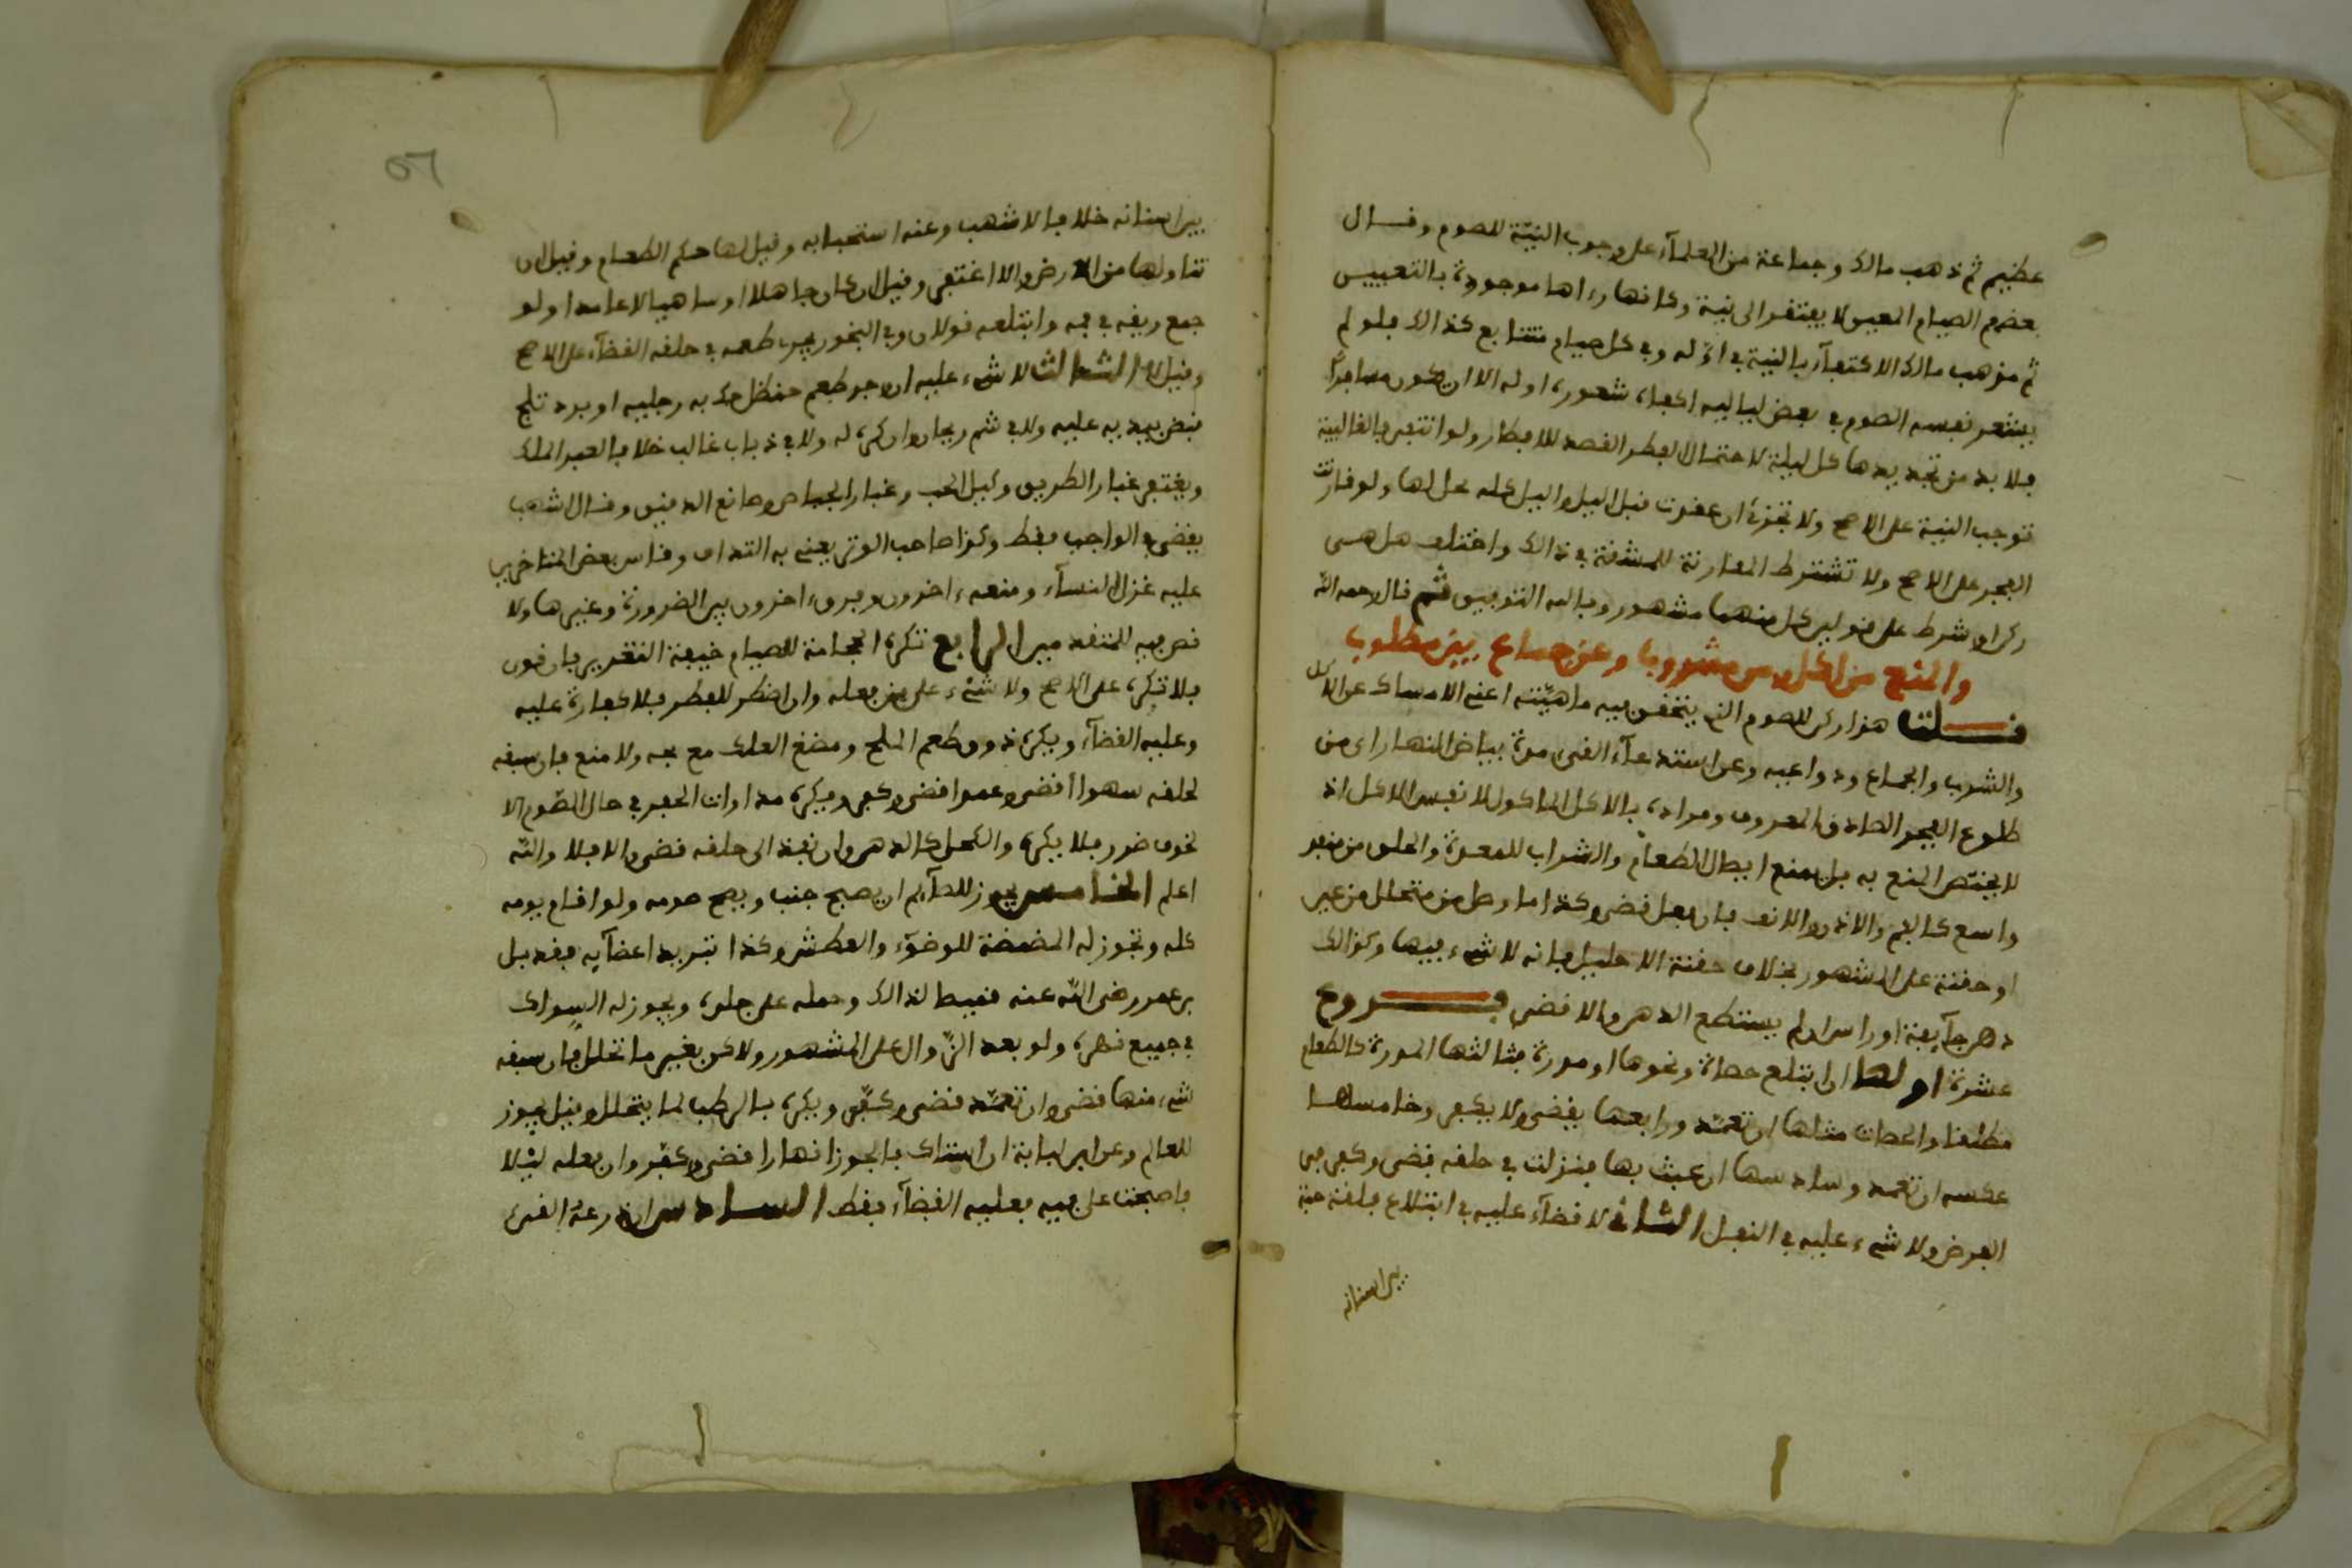 عظيم ثم ذهب مالك وجماعة من العلمآء على وجوب النيّة للصوم وقال
بعضهم الصيام المعين لا يفتقر الى نية وكانها رءاها موجودة بالتعيين
ثم مذهب مالك الاكتفآء بالنية في اوّله وفي كل صيام متتابع كذالك فلو لم
يشعر نفسه الصوم في بعض لياليه اكفاه شعوره اوله الا ان يكون مسافرًا
فلا بد من تجديدها كل ليلة لاحتمال الفطر القصد للافطار ولو انتفى فالغالبية
توجب النية على الاصح ولا تجزئ ان عقدت قبل اليل واليل كله محل لها ولو قارنت
الفجر على الاصح ولا تشترط المقارنة للمشقة في ذالك واختلف هل هي
ركن او شرط على قولين كل منهما مشهور وبالله التوفيق ثم قال رحمه الله
والمنع من اكل ومن مشروب وعن جماع بين مطلوب
قلت هذا ركن للصوم الذي يتحقق فيه ماهيّته اعني الامساك عن الاكل
والشرب والجماع ودواعيه وعن استدعآء القيء مدة بياض النهار اي من
طلوع الفجر الصادق المعروف ومراده بالاكل الماكول لا نفس الاكل اذ
لا يختص المنع به بل يمنع ايصال الطعام والشراب للمعدة والحلق من منفذ
واسع كالفم والاذن والانف فان فعل قضى وكذا ما وصل من متحلل من عين
او حقنة على المشهور بخلاف حقنة الاحليل فانه لا شيء فيها وكذالك
دهن جآيفة او راس ان لم يستطع الدهن والا قضى فروع
عشرة اولها ان ابتلع حصاة ونحوها او مدرة فثالثها المدرة كالطعام
مطلقا والحصات مثلها ان تعمّد ورابعها يقضي ولا يكفر وخامسها
عكسه ان تعمد وسادسها ان عبث بها فنزلت في حلقه قضى وكفر في
الفرض ولا شيء عليه في النفل الثاني لا قضآء عليه في ابتلاع فلقة حبة
بين اسنانه
بين اسنانه خلافا لاشهب وعنه استحبابه وقيل لها حكم الطعام وقيل ان
تناولها من الارض والا اغتفر وقيل ان كان جاهلا او ساهيا لا عامدا ولو
جمع ريقه في فمه وابتلعه قولان وفي البخور يجد طعمه في حلقه القضآء على الاصح
وقيل لا الثالث لا شيء عليه ان وجد طعم حنظل حك به رجليه او برد ثلج
قبض بيديه عليه ولا في شم ريحان وان كره له ولا في ذباب غالب خلافا لعبد الملك
ويغتفر غبار الطريق وكيل الحب وغبار الجباص وصانع الدقيق وقال اشهب
يقضي في الواجب فقط وكذا صاحب الوتر يعني به النداف وقاس بعض المتاخرين
عليه غزل النسآء ومنعه ءاخرون وفرق ءاخرون بين الضرورة وغيرها ولا
نص فيه للمتقدمين الرابع تكره الحجامة للصيام خيفة التغرير فان قوي
فلا تكره على الاصح ولا شيء على من فعله وان اضطر للفطر فلا كفارة عليه
وعليه القضآء ويكره ذوق طعم الملح ومضغ العلك مع مجه ولا منع فان سبقه
لحلقه سهوا اقضى وعمدا قضى وكفر ويكره مداوات الحفر في حال الصوم الا
لخوف ضرر فلا يكره والكحل كالدهن وان نفذ الى حلقه قضى والا فلا والله
اعلم الخامس يجوز للصآيم ان يصبح جنب ويصح صومه ولو اقام يومه
كله وتجوز له المضمضة للوضوء والعطش وكذا تبريد اعضآيه فقد بل
بن عمر رضي الله عنه قميصا لذالك وحمله على جلده ويجوز له السواك
في جميع نهاره ولو بعد الزّوال على المشهور ولاكن بغير ما تحلل فان سبقه
شيء منها قضى وان تعمّد قضى وكفّر ويكره بالرطب لما يتحلل وقيل يجوز
للعالم وعن ابن لبابة ان استاك بالجوزا نهارا قضى وكفّر وان فعله ليْلا
فاصبحت على فيه فعليه القضآء فقط السادس ان ذرعه القيء